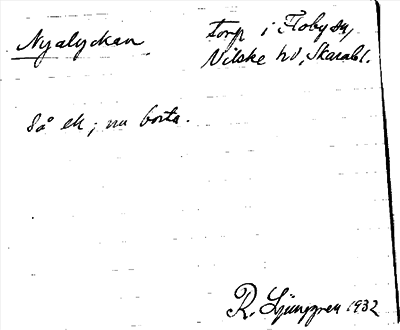 Nyalyckan
torp i Floby sn,
Vilske hd, Skarabl.
Så ek; nu borta.
R. Ljunggren 1932